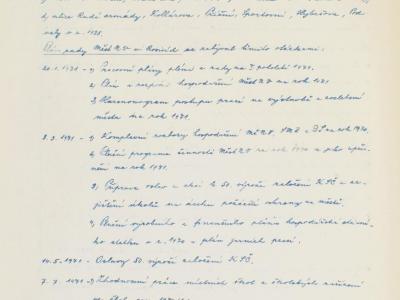 d, ulice Rudé armády, Kollárova, Příční, Sportovní, Hybešova, Pod-
valy a r. 1938.
Plén rady MěstNV a Komisí se zabýval těmito otázkami:
20.1.1971 - 1) Pracovní plány pléna a rady na I. pololetí 1971.
2) Plán a rozpočet hospodaření MěstNV na rok 1971
3) Harmonogram postupu prací na výstavbě a zvelebení
města na rok 1971.
8.3.1971 - 1) Komplexní rozbory hospodaření MěNV, za rok 1970.
2) Plnění programu činnosti MěstNV za rok 1970 a jeho upřes-
nění na rok 1971.
3) Příprava oslav a akcí k 50. výročí založení KSČ a za-
jištění úkolů na úseku požární ochrany ve městě.
4) Plnění výrobního a finančního plánu hospodářské
ho v r. 1970 - plán jarních prací.
14.5.1971 - Oslavy 50. výročí založení KSČ.
7.7.1971 - 1) Zhodnocení práce místních škol a školských zařízení